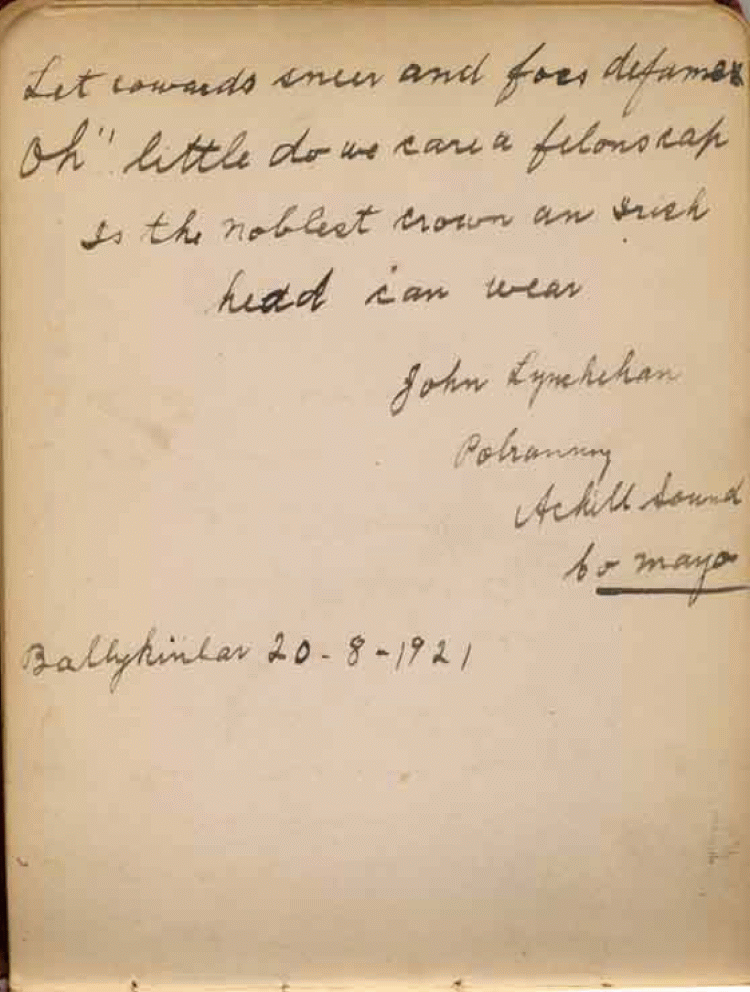 Let cowards sneer and foes defame
Oh" little do we care a felons cap
Is the noblest crown an Irish
head can wear
John Lynchehan
Polranny
Achill Sound
Co mayo
Ballykinlar 20-8-1921